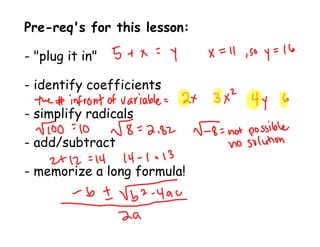 Pre-req's for this lesson:
- "plug it in" 5 + x = y x = 11, so y = 16
- identify coefficients
the # infront of variable = 2x 3x² 4y 6
- simplify radicals
√100 = 10 √8 = 2.82 √-8 = not possible
no solution
- add/subtract
2+12 = 14 14-1 = 13
- memorize a long formula!
-b ± √b²-4ac
2a